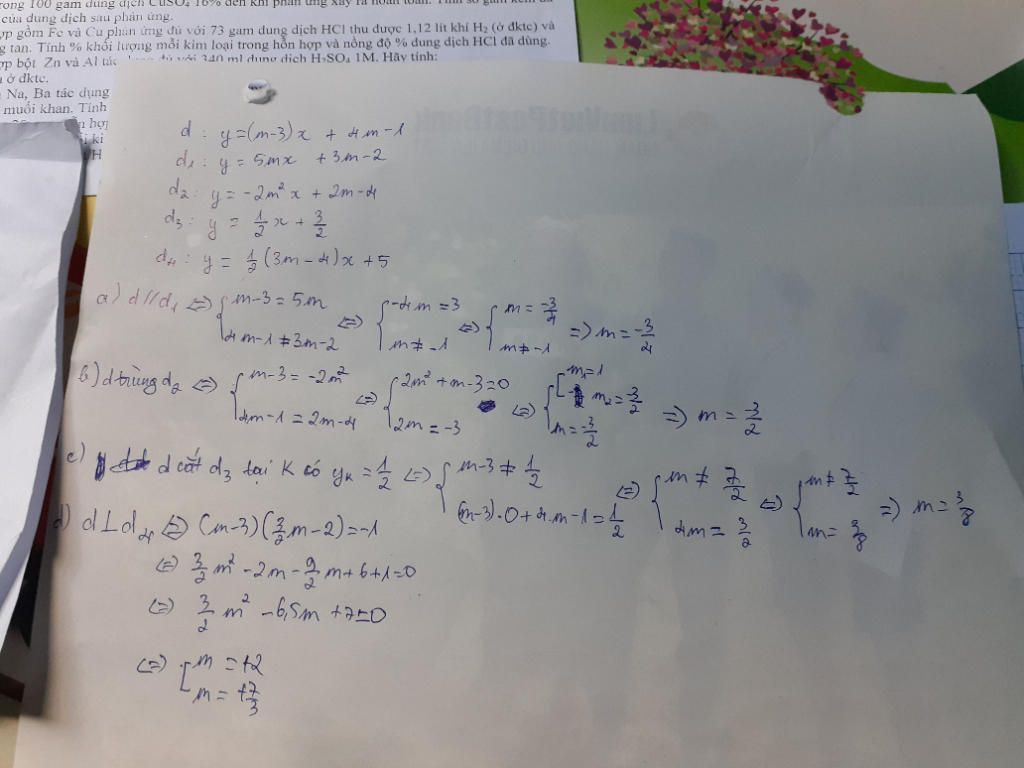 rong 100 gam dung dịch CuSO₄ 16% đến khi phản ứng xảy ra hoàn toàn.
của dung dịch sau phản ứng.
ợp gồm Fe và Cu phản ứng đủ với 73 gam dung dịch HCl thu được 1,12 lít khí H₂ (ở đktc) và
g tan. Tính % khối lượng mỗi kim loại trong hỗn hợp và nồng độ % dung dịch HCl đã dùng.
ợp bột Zn và Al tác dụng đủ với 340 ml dung dịch H₂SO₄ 1M. Hãy tính:
ở đktc.
Na, Ba tác dụng
muối khan. Tính
d : y=(m-3)x + 4m-1
d₁ : y = 5mx + 3m-2
d₂ : y = -2m²x + 2m-4
d₃ : y = 1/2 x + 3/2
d₄ : y = 1/2 (3m-4)x + 5
a) d // d₁ <=> { m-3 = 5m ; 4m-1 ≠ 3m-2 <=> { -4m = 3 ; m ≠ -1 <=> { m = -3/4 ; m ≠ -1 => m = -3/4
b) d trùng d₂ <=> { m-3 = -2m² ; 4m-1 = 2m-4 <=> { 2m² + m-3=0 ; 2m = -3 <=> { [ m₁=1 ; m₂ = -3/2 ; m = -3/2 => m = -3/2
c) d cắt d₃ tại K có yₖ = 1/2 <=> { m-3 ≠ 1/2 ; (m-3).0 + 4m-1 = 1/2 <=> { m ≠ 7/2 ; 4m = 3/2 <=> { m ≠ 7/2 ; m = 3/8 => m = 3/8
d) d ⊥ d₄ <=> (m-3)(3/2 m-2) = -1
<=> 3/2 m² - 2m - 9/2 m + 6 + 1 = 0
<=> 3/2 m² - 6,5m + 7 = 0
<=> [ m = +2
m = +7/3